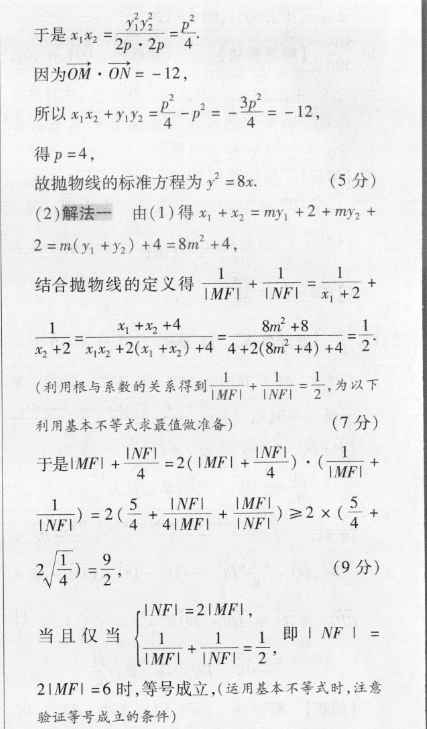 于是 x₁x₂ = y₁²y₂²/(2p·2p) = p²/4.
因为 OM→ · ON→ = -12,
所以 x₁x₂ + y₁y₂ = p²/4 - p² = -3p²/4 = -12,
得 p = 4,
故抛物线的标准方程为 y² = 8x. (5 分)
(2)解法一 由(1)得 x₁ + x₂ = my₁ + 2 + my₂ +
2 = m(y₁ + y₂) + 4 = 8m² + 4,
结合抛物线的定义得 1/|MF| + 1/|NF| = 1/(x₁ + 2) +
1/(x₂ + 2) = (x₁ + x₂ + 4)/(x₁x₂ + 2(x₁ + x₂) + 4) = (8m² + 8)/(4 + 2(8m² + 4) + 4) = 1/2.
(利用根与系数的关系得到 1/|MF| + 1/|NF| = 1/2,为以下
利用基本不等式求最值做准备) (7 分)
于是|MF| + |NF|/4 = 2(|MF| + |NF|/4)·(1/|MF| +
1/|NF|) = 2(5/4 + |NF|/4|MF| + |MF|/|NF|) ≥ 2 × (5/4 +
2√(1/4)) = 9/2, (9 分)
当且仅当 { |NF| = 2|MF|, 1/|MF| + 1/|NF| = 1/2, 即 |NF| =
2|MF| = 6 时,等号成立,(运用基本不等式时,注意
验证等号成立的条件)